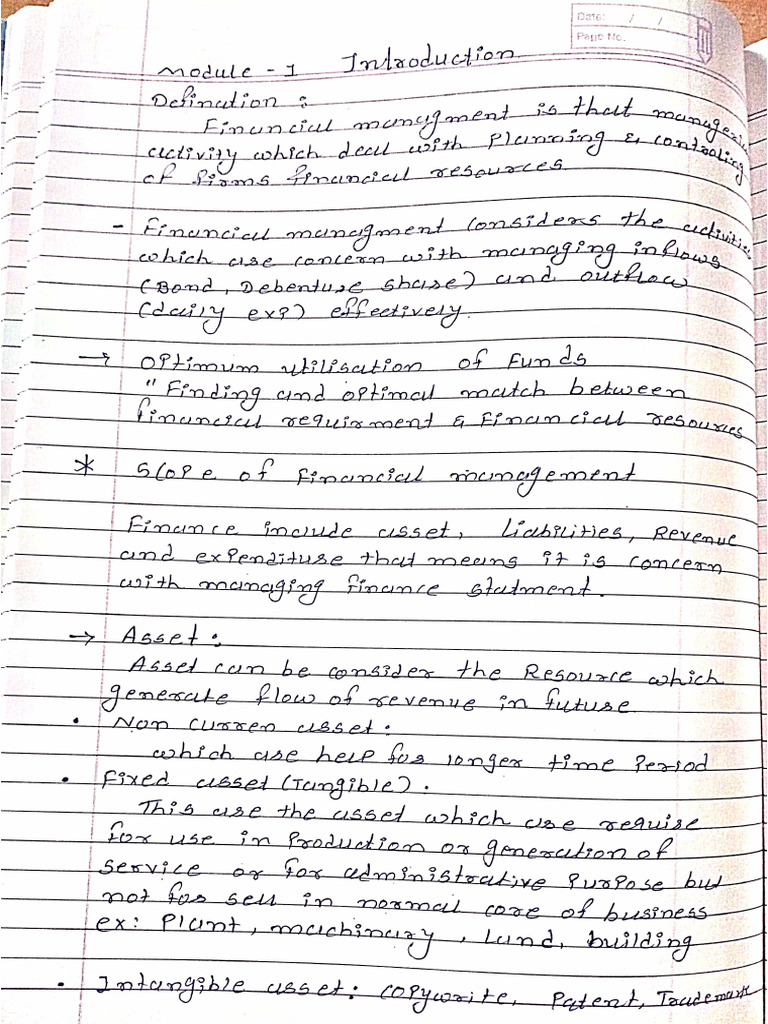 Date: / /
Page No.
Module - 1 Introduction
Defination :
Financial managment is that managerial
activity which deal with Planning & controling
of firms financial resources
- Financial managment considers the activities
which are concern with managing inflows
(Bond, Debenture share) and outflow
(daily exp) effectively.
→ Optimum utilisation of Funds
" Finding and optimal match between
financial requirment & Financial resources
* Scope of financial management
Finance include asset, Liabilities, Revenue
and expenditure that means it is concern
with managing finance statment.
→ Asset :
Asset can be consider the Resource which
generate flow of revenue in future
• Non curren asset :
which are help for longer time Period
• Fixed asset (Tangible).
This are the asset which are require
for use in Production or generation of
service or for administrative Purpose but
not for sell in normal core of business
ex: Plant, machinary, Land, building
• Intangible asset : copywrite, Patent, Trademark